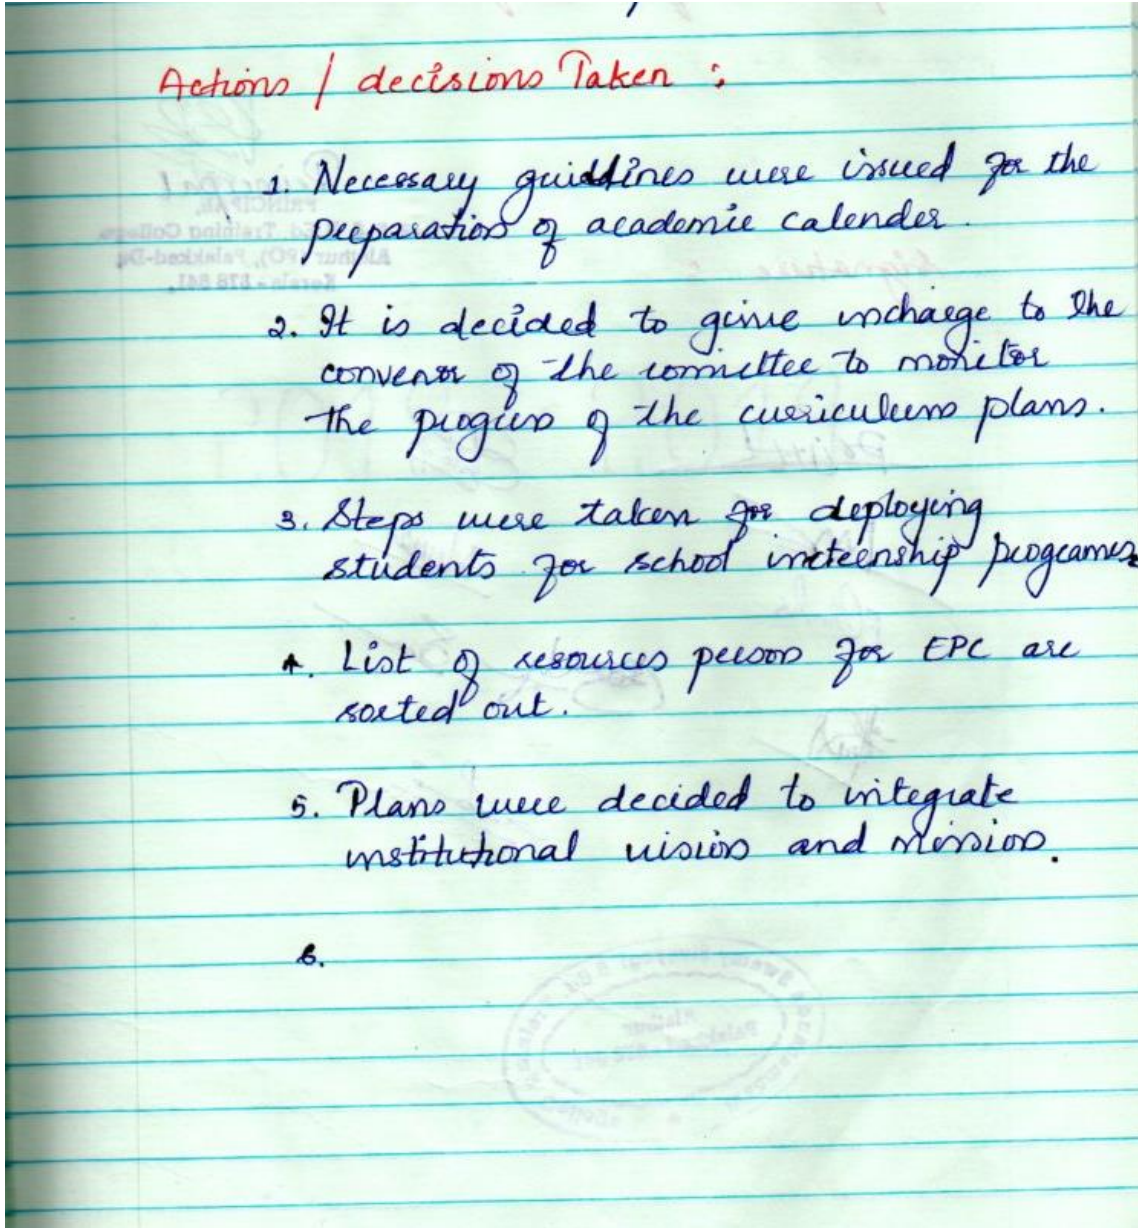 Actions / decisions Taken :
1. Necessary guidlines were issued for the
preparation of academic calender.
2. It is decided to give incharge to the
convenor of the committee to monitor
the progress of the curriculum plans.
3. Steps were taken for deploying
students for school incteenship programes
4. List of resources person for EPC are
sorted out.
5. Plans were decided to integrate
institutional vision and mission.
6.